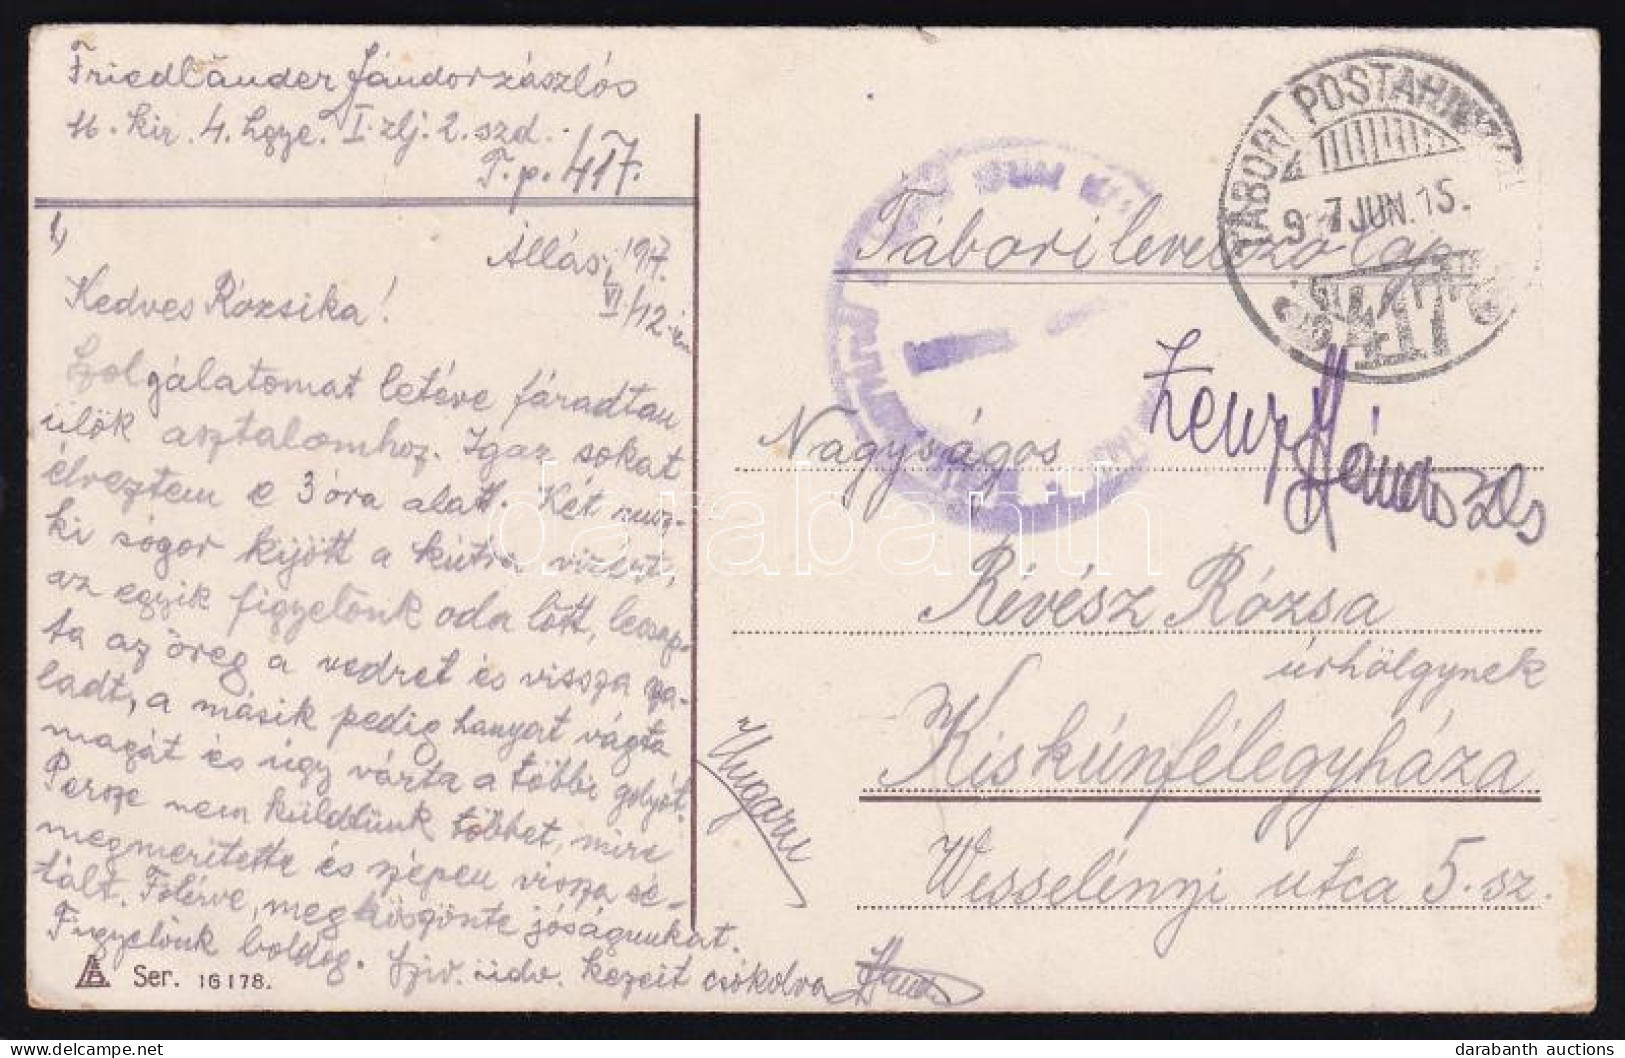 Friedländer Sándor zászlós
M. kir. 4. hgye. I. zlj. 2. szd.
T. p. 417.
1,
Állás, 1917.
VI/12-én
Kedves Rózsika!
Szolgálatomat letéve fáradtan
ülök asztalomhoz. Igaz sokat
élveztem e 3 óra alatt. Két rusz-
ki sógor kijött a kútra vizert,
az egyik figyelönk oda lött, lecsap-
ta az öreg a vedret és vissza sza-
ladt, a másik pedig hanyat vágta
magát és úgy várta a többi golyót.
Persze nem küldtünk többet, mire
megmeritette és szépen vissza sé-
tált. Fölérve, megköszönte jóságunkat.
Figyelönk boldog. Sziv. üdv. kezeit csókolva
Ser. 16178.
TÁBORI POSTAHIVATAL
917 JUN. 15.
417
Tábori levelező lap
Nagyságos
Révész Rózsa
úrhölgynek
Kiskúnfélegyháza
Wesselényi utca 5. sz.
Hugarn
darabanth
darabanth auctions